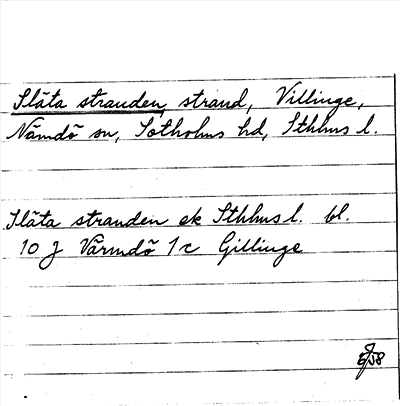 Släta stranden, strand, Villinge,
Nämdö sn, Sotholms hd, Sthlms l.
Släta stranden ek Sthlms l. bl.
10 J Värmdö 1 c Gillinge